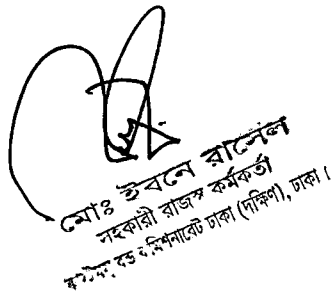 মোঃ ইবনে রাসেল
সহকারী রাজস্ব কর্মকর্তা
বন্ড কমিশনারেট ঢাকা (দক্ষিণ), ঢাকা।